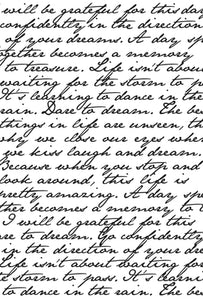 will be grateful for this day
confidently in the direction
of your dreams. A day sp
ogether becomes a memory
to treasure. Life isn't abou
waiting for the storm to p
It's learning to dance in the
rain. Dare to dream. The bes
things in life are unseen, th
why we close our eyes when
we kiss laugh and dream.
Because when you stop and
ook around, this life is
pretty amazing. A day spe
ther becomes a memory to t
I will be grateful for this
are to dream. Go confidently
in the direction of your dre
Life isn't about waiting for
e storm to pass. It's learni
to dance in the rain. The bes